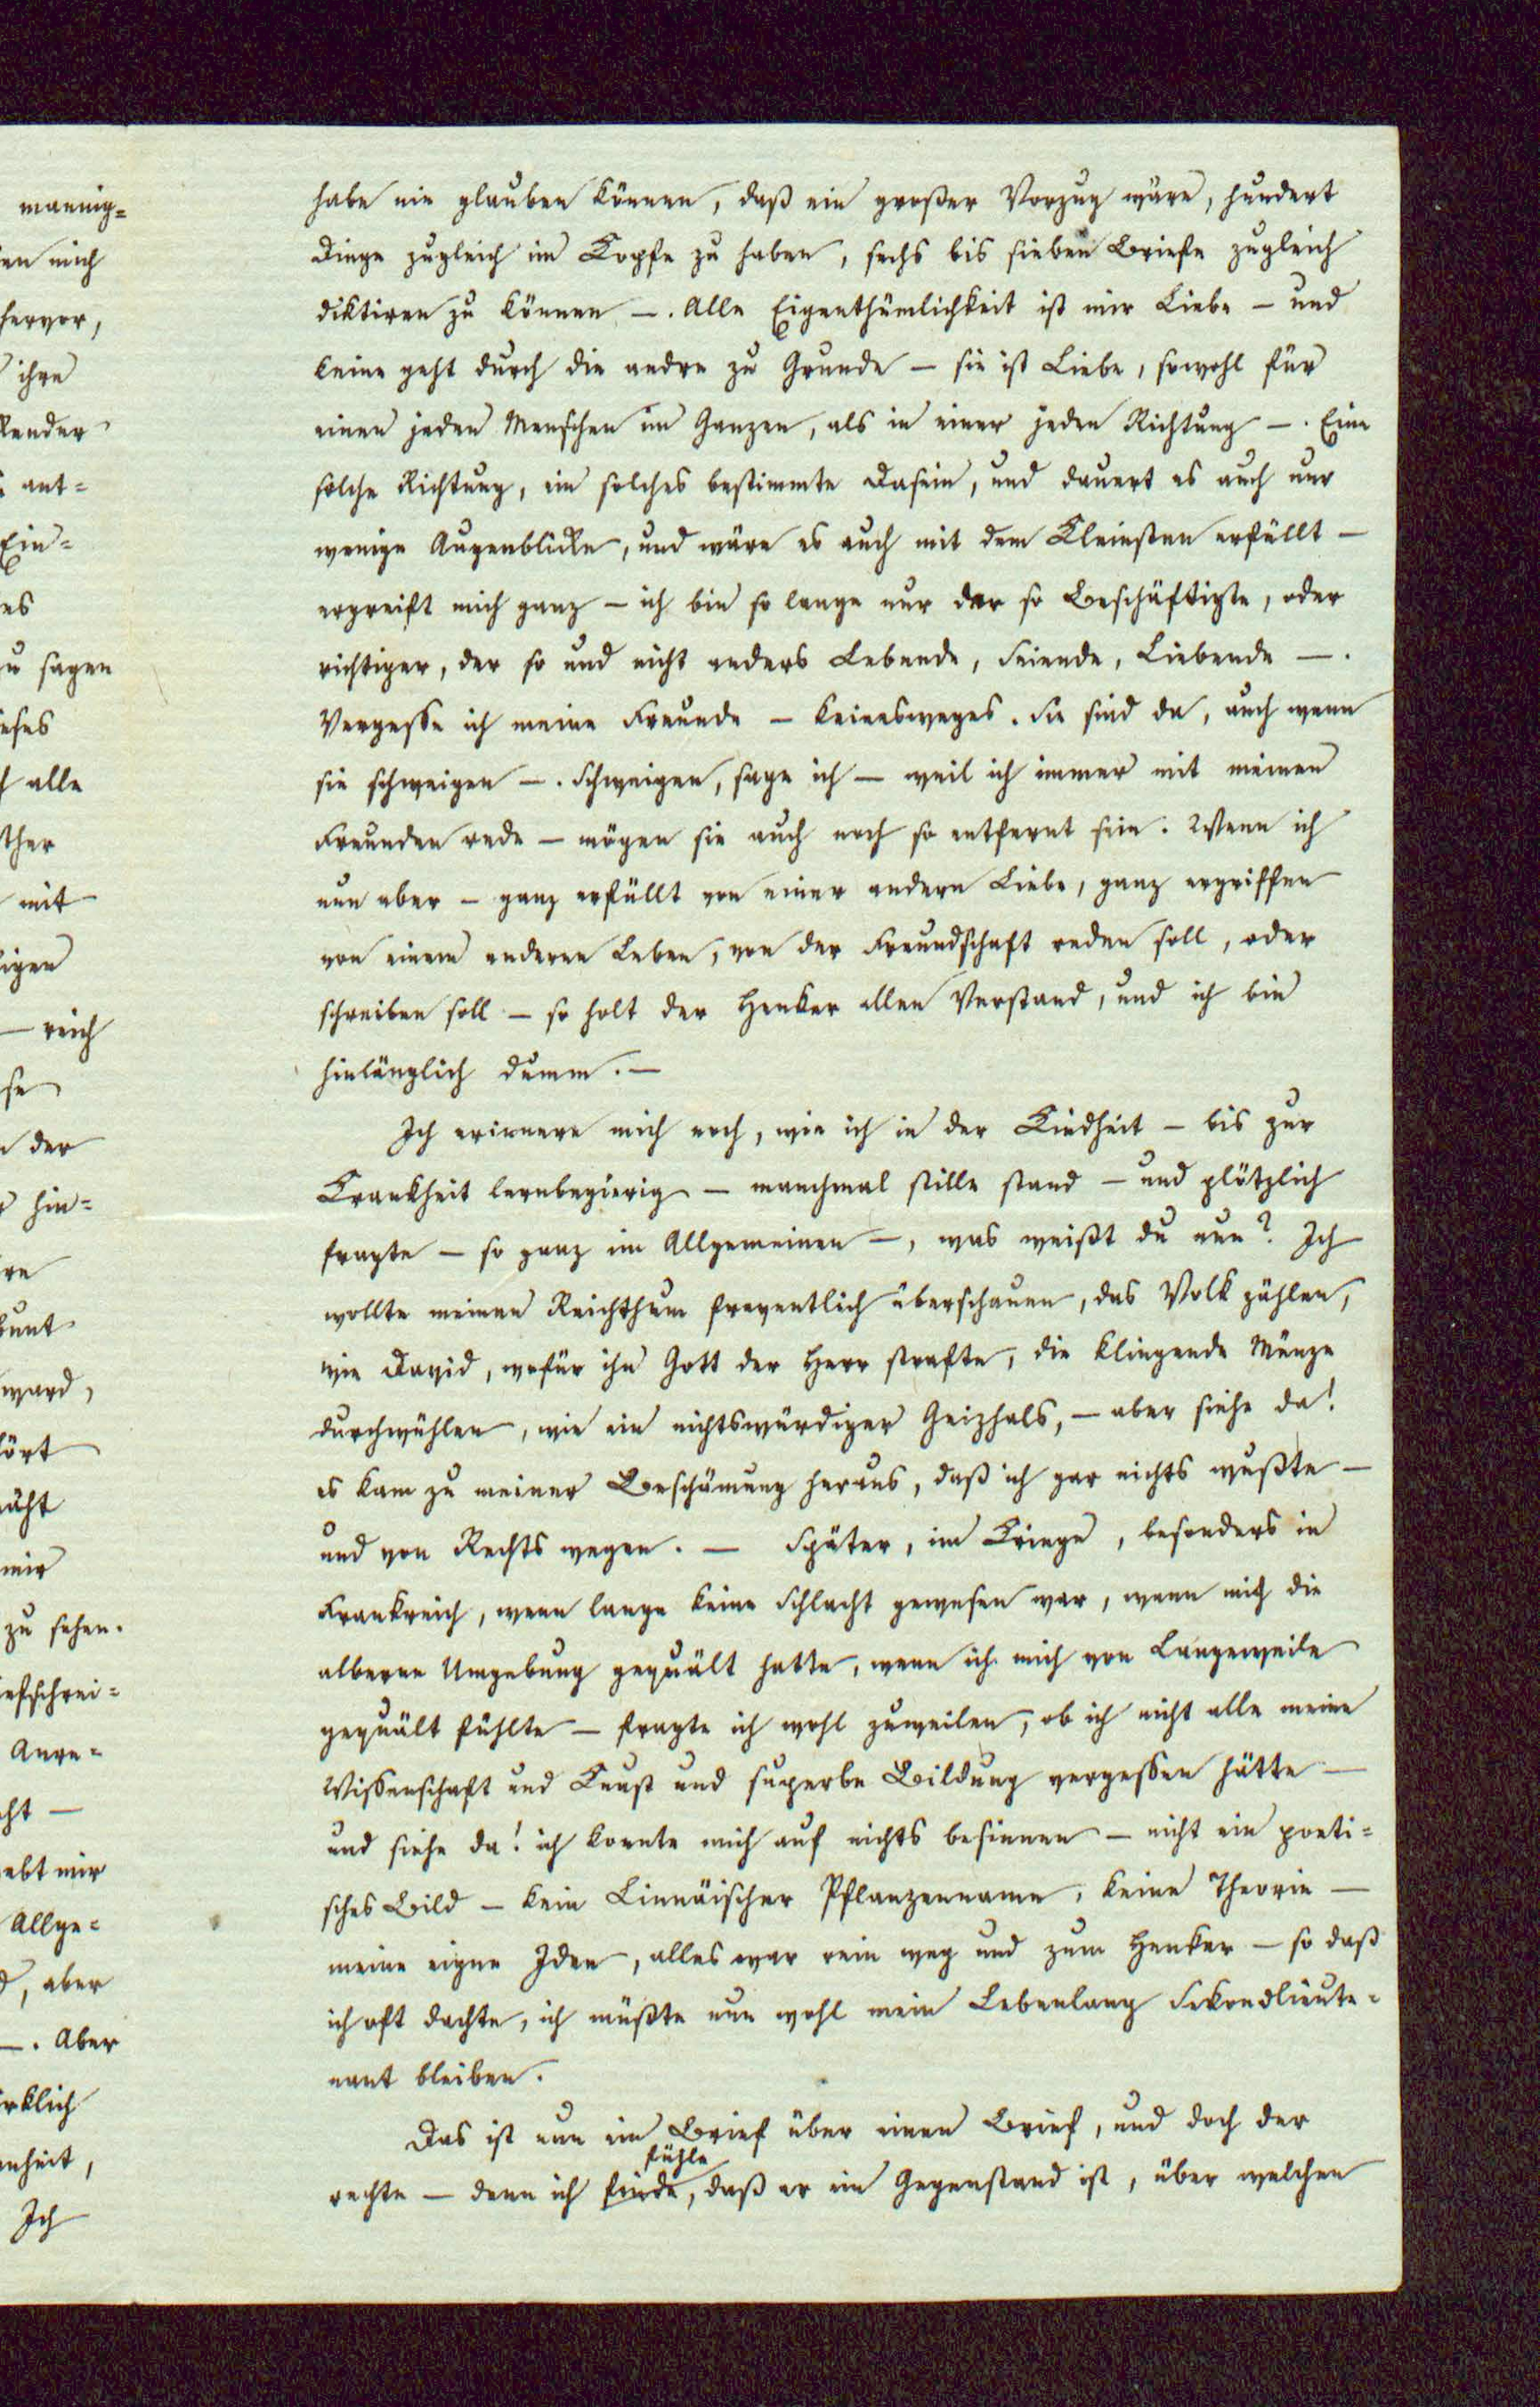 habe nie glauben können, daß ein großer Vorzug wäre, hundert
Dinge zugleich im Kopfe zu haben, sechs bis sieben Briefe zugleich
diktiren zu können —. Alle Eigenthümlichkeit ist mir Liebe — und
keine geht durch die andre zu Grunde — sie ist Liebe, sowohl für
einen jeden Menschen im Ganzen, als in einer jeden Richtung —. Eine
solche Richtung, ein solches bestimmte Dasein, und dauert es auch nur
wenige Augenblicke, und wäre es auch mit dem Kleinsten erfüllt —
ergreift mich ganz — ich bin so lange nur der so Beschäftigte, oder
richtiger, der so und nicht anders Lebende, Seiende, Liebende —.
Vergesse ich meine Freunde — keinesweges. Sie sind da, auch wenn
sie schweigen —. Schweigen, sage ich — weil ich immer mit meinen
Freunden rede — mögen sie auch noch so entfernt sein. Wenn ich
nun aber — ganz erfüllt von einer andern Liebe, ganz ergriffen
von einem anderen Leben, von der Freundschaft reden soll, oder
schreiben soll — so holt der Henker allen Verstand, und ich bin
hinlänglich dumm. —
Ich erinnere mich noch, wie ich in der Kindheit — bis zur
Krankheit lernbegierig — manchmal stille stand — und plötzlich
fragte — so ganz im Allgemeinen —, was weißt du nun? Ich
wollte meinen Reichthum freventlich überschauen, das Volk zählen,
wie David, wofür ihn Gott der Herr strafte, die klingende Münze
durchwühlen, wie ein nichtswürdiger Geizhals, — aber siehe da!
es kam zu meiner Beschämung heraus, daß ich gar nichts wußte —
und von Rechts wegen. — Später, im Kriege, besonders in
Frankreich, wenn lange keine Schlacht gewesen war, wenn mich die
alberne Umgebung gequält hatte, wenn ich mich von Langeweile
gequält fühlte — fragte ich wohl zuweilen, ob ich nicht alle meine
Wissenschaft und Kunst und superbe Bildung vergessen hätte —
und siehe da! ich konnte mich auf nichts besinnen — nicht ein poeti=
sches Bild — kein Linnäischer Pflanzenname, keine Theorie —
meine eigne Idee, alles war rein weg und zum Henker — so daß
ich oft dachte, ich müßte nun wohl mein Lebenlang Sekondlieute=
nant bleiben.
Das ist nun ein Brief über einen Brief, und doch der
fühle
rechte — denn ich finde, daß er ein Gegenstand ist, über welchen
mannig=
mich
hervor,
ihre
ant=
Ein=
es
sagen
alle
mit
— reich
der
hin=
ward,
mir
zu sehen.
Allge=
, aber
—. Aber
Ich